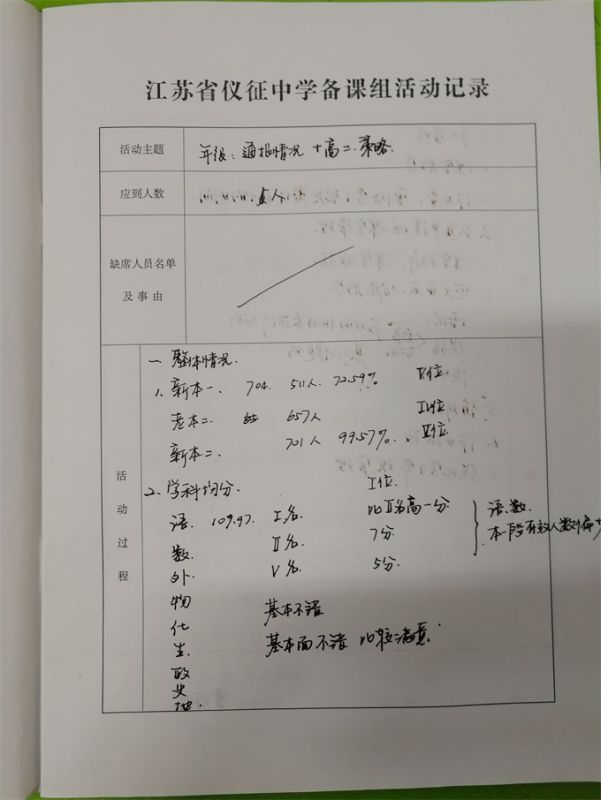 江苏省仪征中学备课组活动记录
活动主题 年级：通报情况 + 高二策略.
应到人数 5人
缺席人员名单
及事由
活动过程
一. 整体情况.
1. 新本一. 704. 511人. 72.59% 位
老本二. 657人 位
新本二. 701人 99.57%. 位
2. 学科均分. I位.
语. 109.97. I名. 比II名高一分.
数. II名 7分.
外. V名 5分.
语.数.
本一段有效人数偏少
物 基本不错
化
生. 基本面不错 比较满意.
政
史
地.